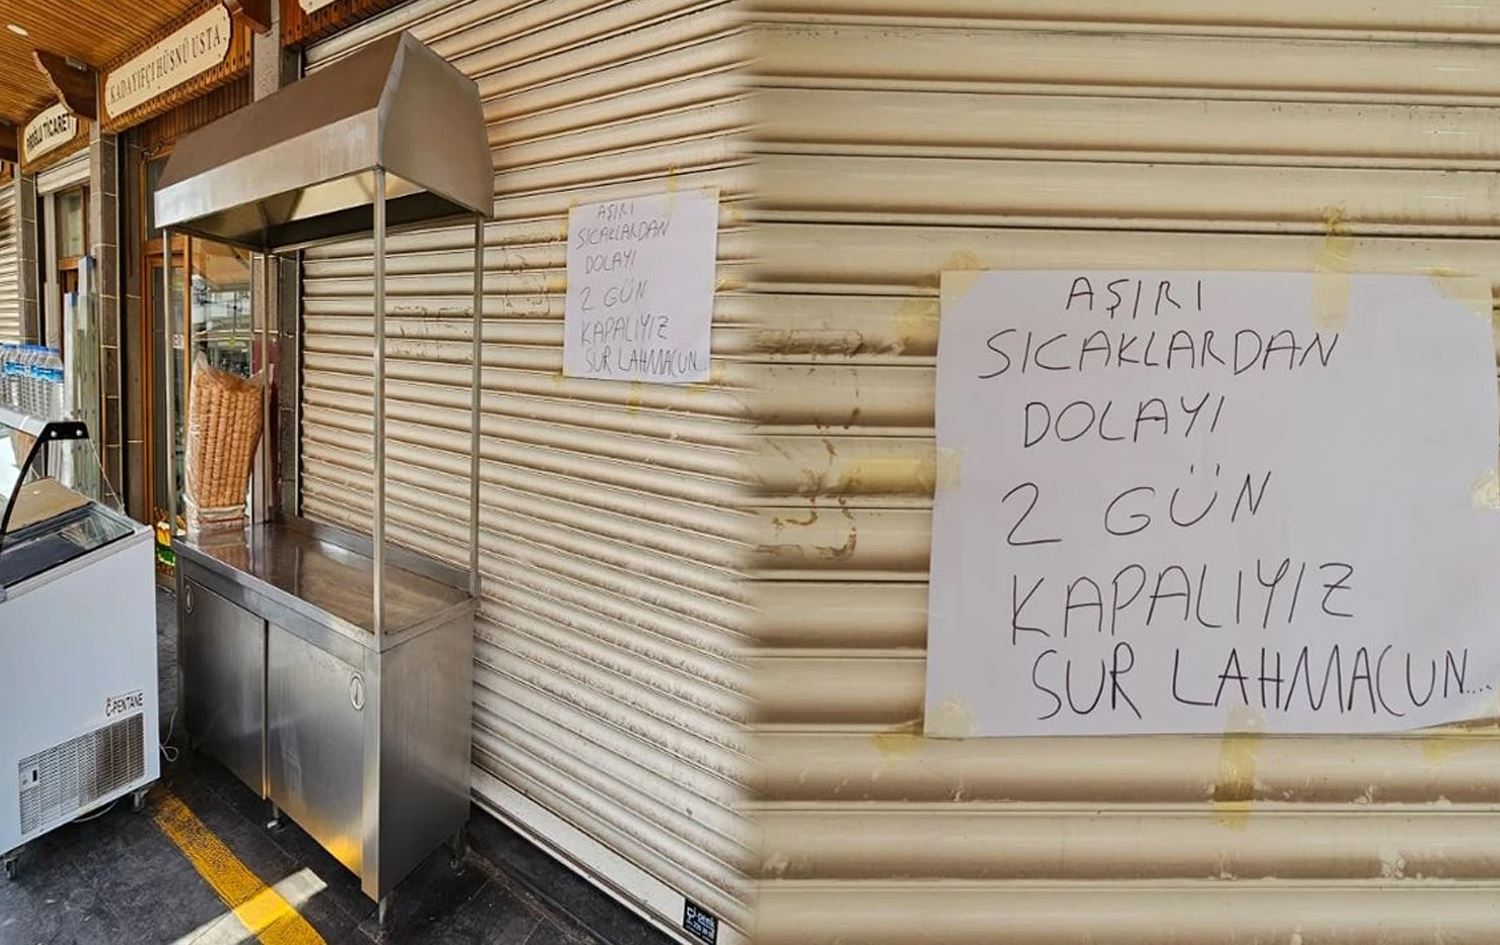 KADAYIFÇI HÜSNÜ USTA
TİCARET
AŞIRI
SICAKLARDAN
DOLAYI
2 GÜN
KAPALIYIZ
SUR LAHMACUN...
C-PENTANE
AŞIRI
SICAKLARDAN
DOLAYI
2 GÜN
KAPALIYIZ
SUR LAHMACUN....